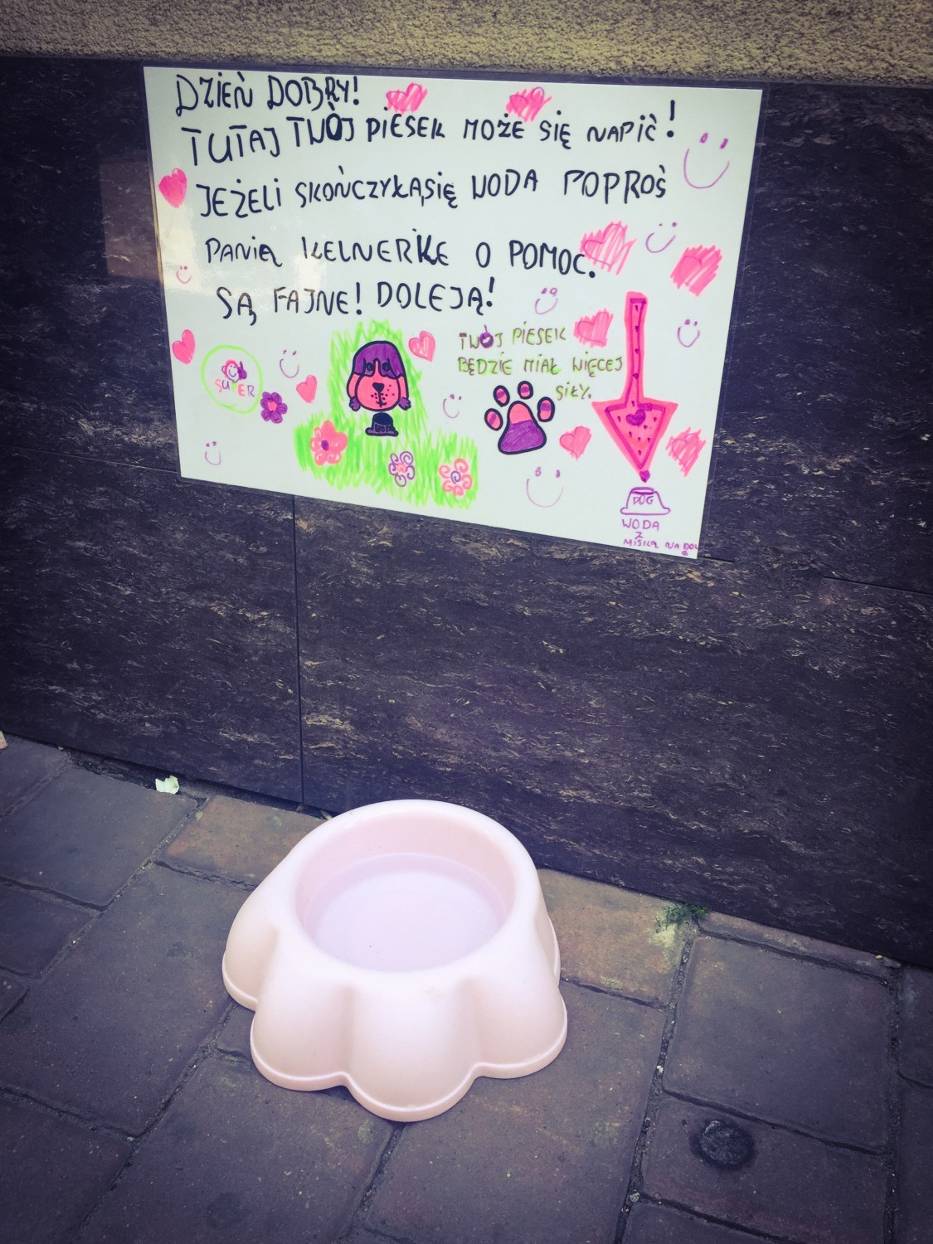 DZIEŃ DOBRY!
TUTAJ TWÓJ PIESEK MOŻE SIĘ NAPIĆ!
JEŻELI SKOŃCZYŁASIĘ WODA POPROŚ
PANIĄ KELNERKE O POMOC.
SĄ FAJNE! DOLEJĄ!
TWÓJ PIESEK
BĘDZIE MIAŁ WIĘCEJ
SIŁY.
SUPER
DUG
WODA
Z
MISKĄ NA DOLE